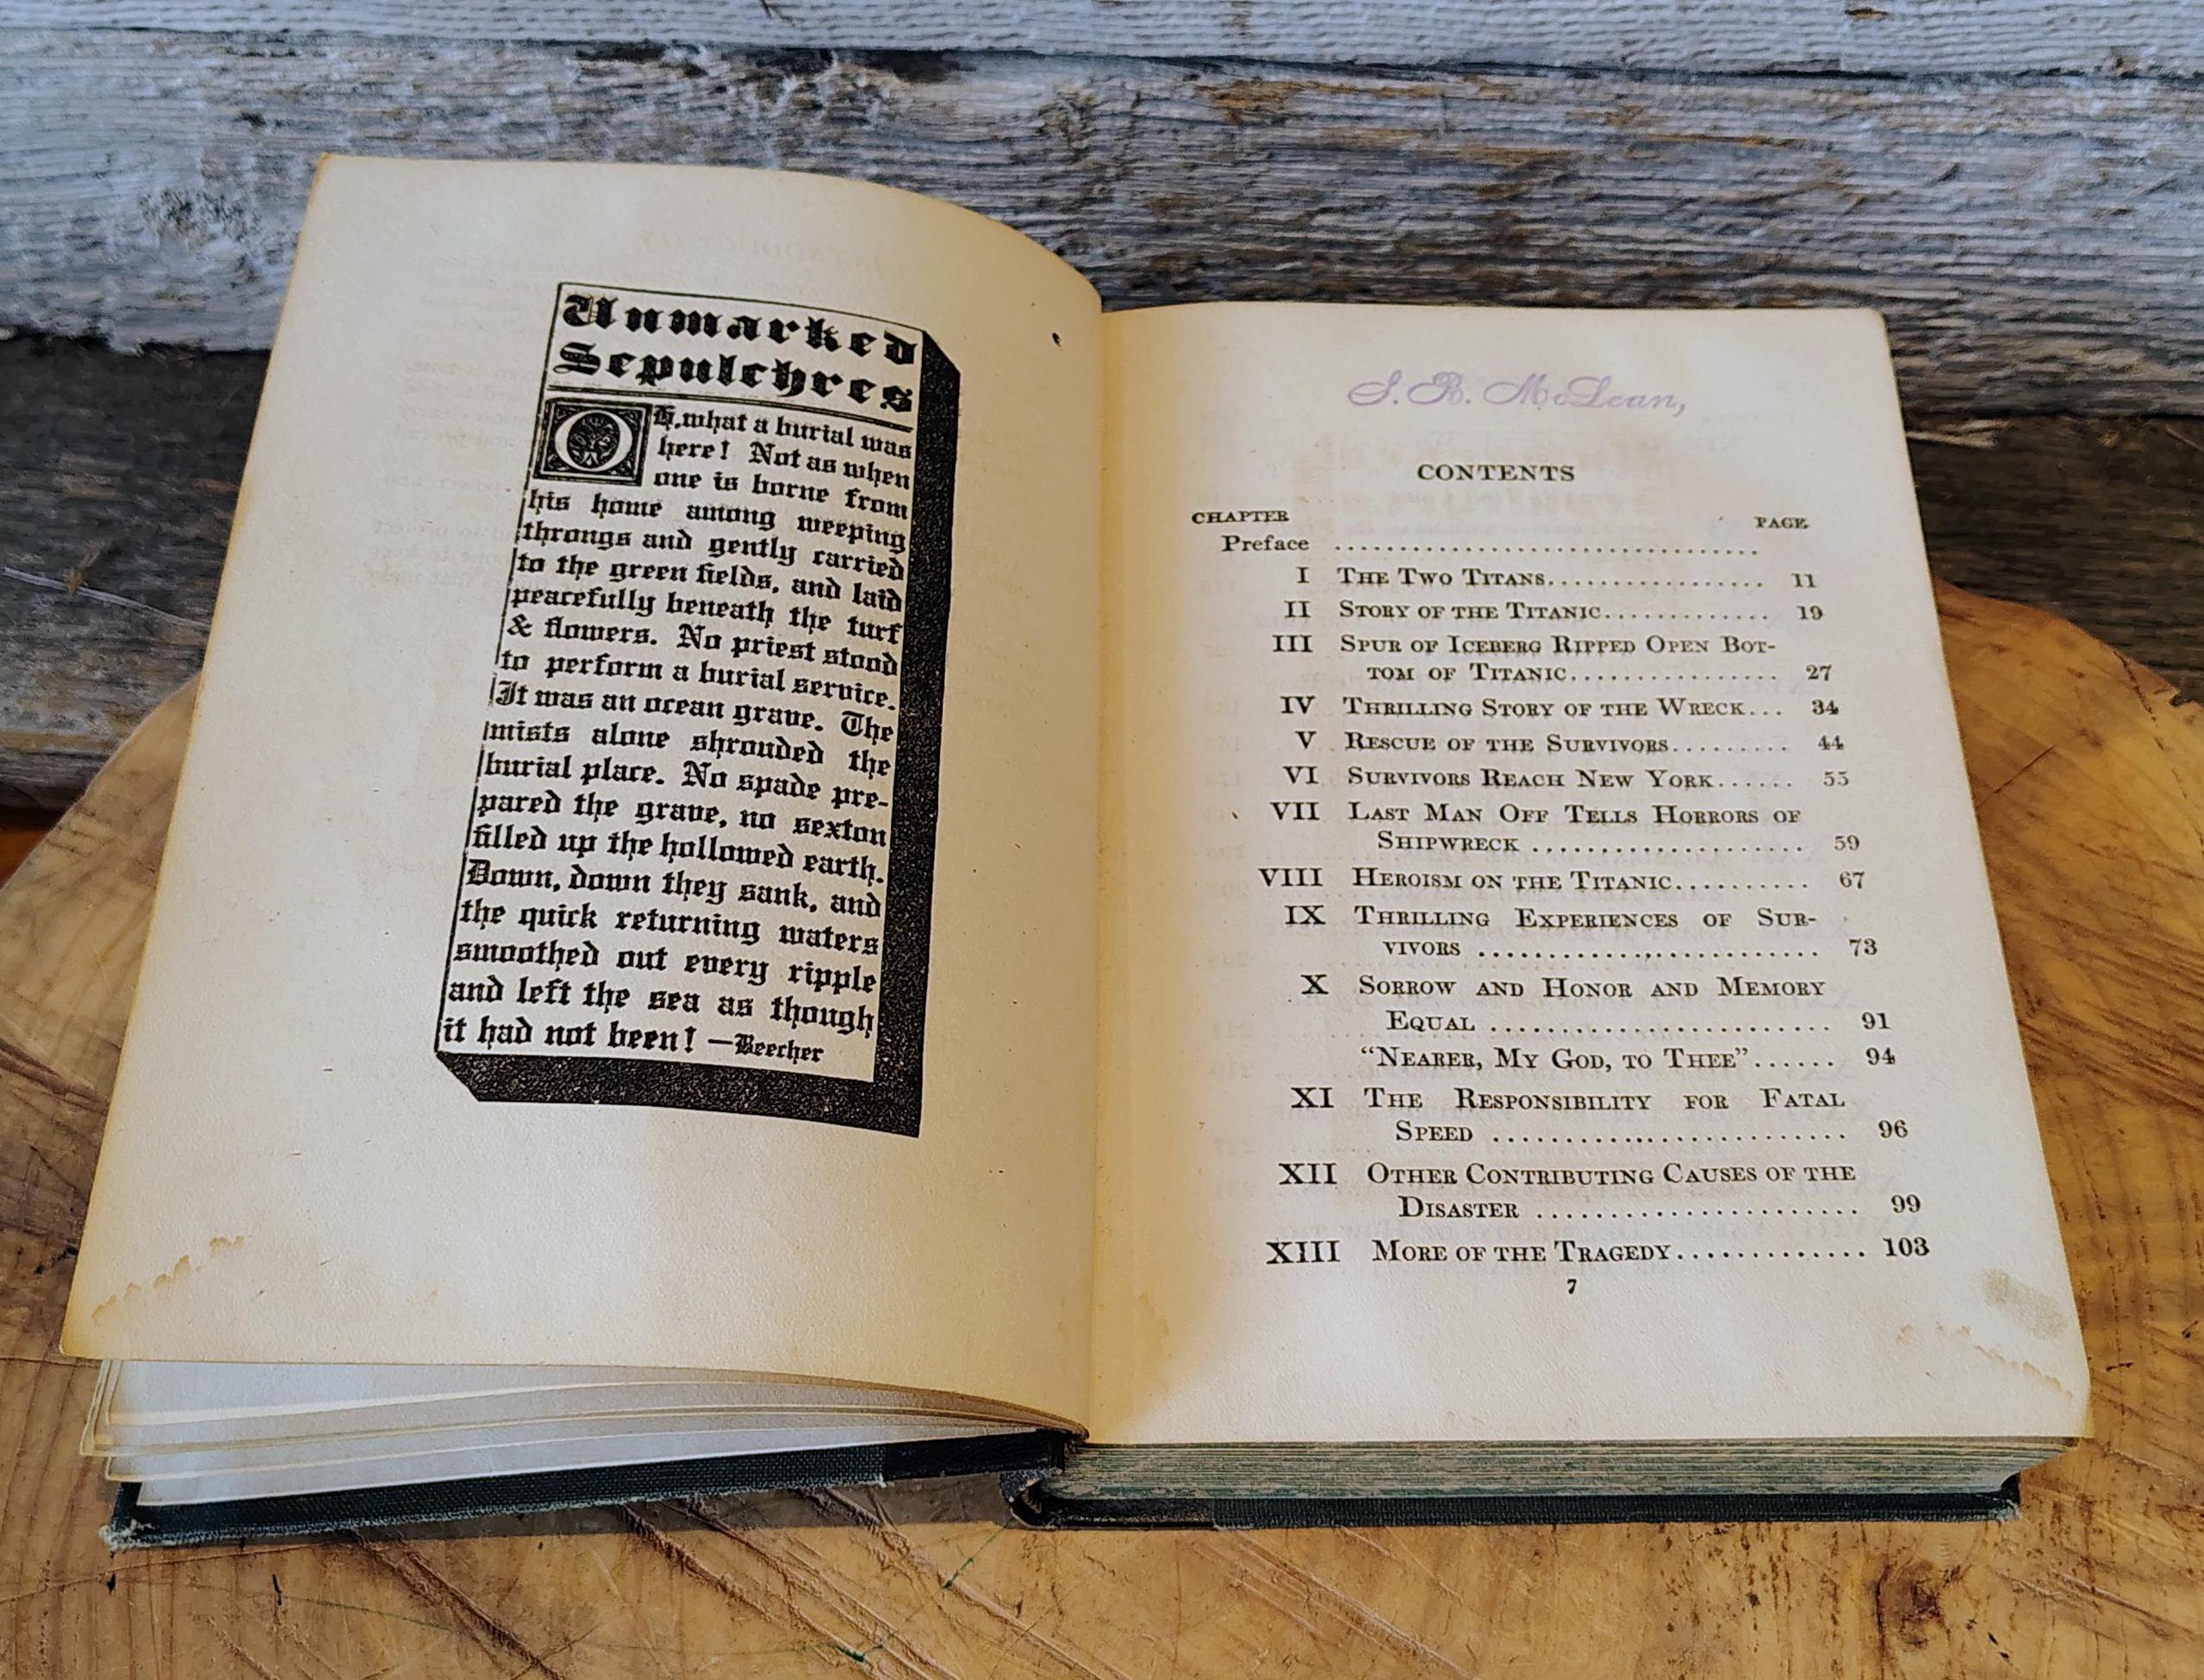 Unmarked
Sepulchres
OH, what a burial was
here! Not as when
one is borne from
his home among weeping
throngs and gently carried
to the green fields, and laid
peacefully beneath the turf
& flowers. No priest stood
to perform a burial service.
It was an ocean grave. The
mists alone shrouded the
burial place. No spade pre-
pared the grave, no sexton
filled up the hollowed earth.
Down, down they sank, and
the quick returning waters
smoothed out every ripple
and left the sea as though
it had not been! —Beecher
S. R. McLean,
CONTENTS
CHAPTER PAGE
Preface ................................
I THE TWO TITANS................. 11
II STORY OF THE TITANIC............. 19
III SPUR OF ICEBERG RIPPED OPEN BOT-
TOM OF TITANIC................ 27
IV THRILLING STORY OF THE WRECK... 34
V RESCUE OF THE SURVIVORS......... 44
VI SURVIVORS REACH NEW YORK...... 55
VII LAST MAN OFF TELLS HORRORS OF
SHIPWRECK ..................... 59
VIII HEROISM ON THE TITANIC.......... 67
IX THRILLING EXPERIENCES OF SUR-
VIVORS .......................... 73
X SORROW AND HONOR AND MEMORY
EQUAL .......................... 91
"NEARER, MY GOD, TO THEE"...... 94
XI THE RESPONSIBILITY FOR FATAL
SPEED .......................... 96
XII OTHER CONTRIBUTING CAUSES OF THE
DISASTER ........................ 99
XIII MORE OF THE TRAGEDY............. 103
7